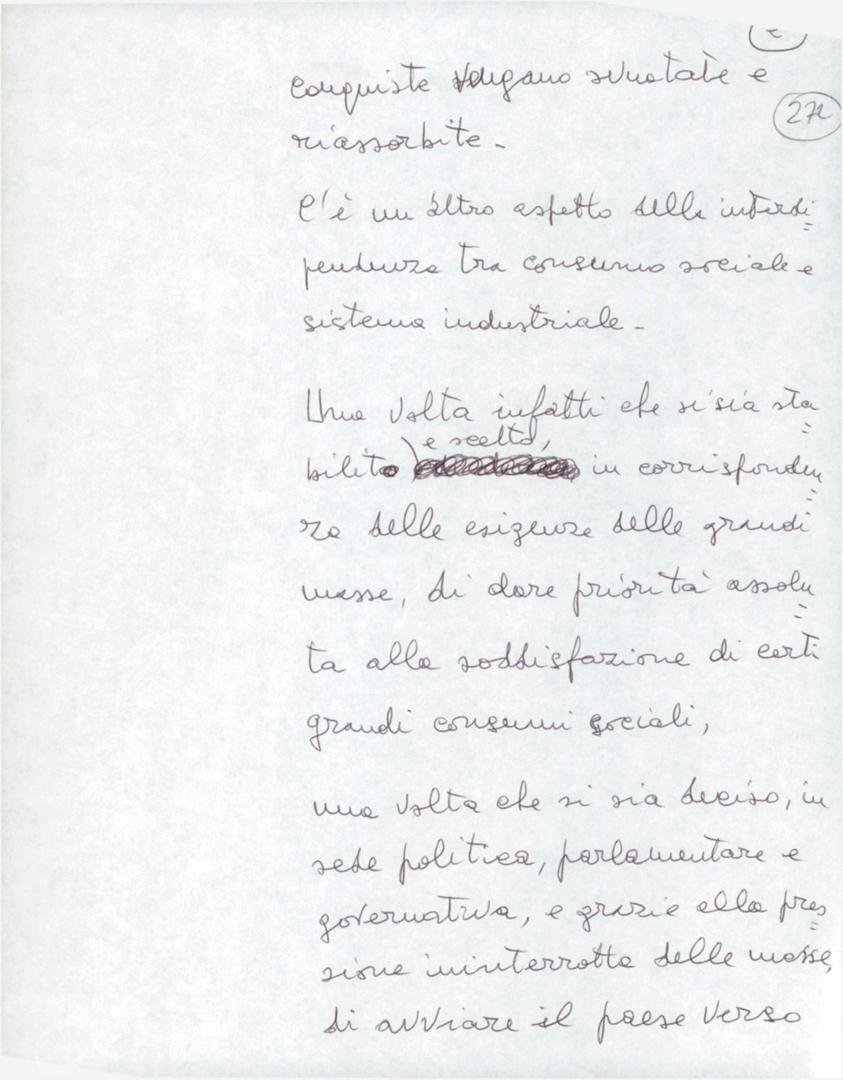 conquiste vengano svuotate e
272
riassorbite -
C'è un altro aspetto della interdi=
pendenza tra consumo sociale e
sistema industriale -
Una volta infatti che si sia sta=
e scelto,
bilito in corrisponden=
za delle esigenze delle grandi
masse, di dare priorità assolu=
ta alla soddisfazione di certi
grandi consumi sociali,
una volta che si sia deciso, in
sede politica, parlamentare e
governativa, e grazie alla pres=
sione ininterrotta delle masse,
di avviare il paese verso